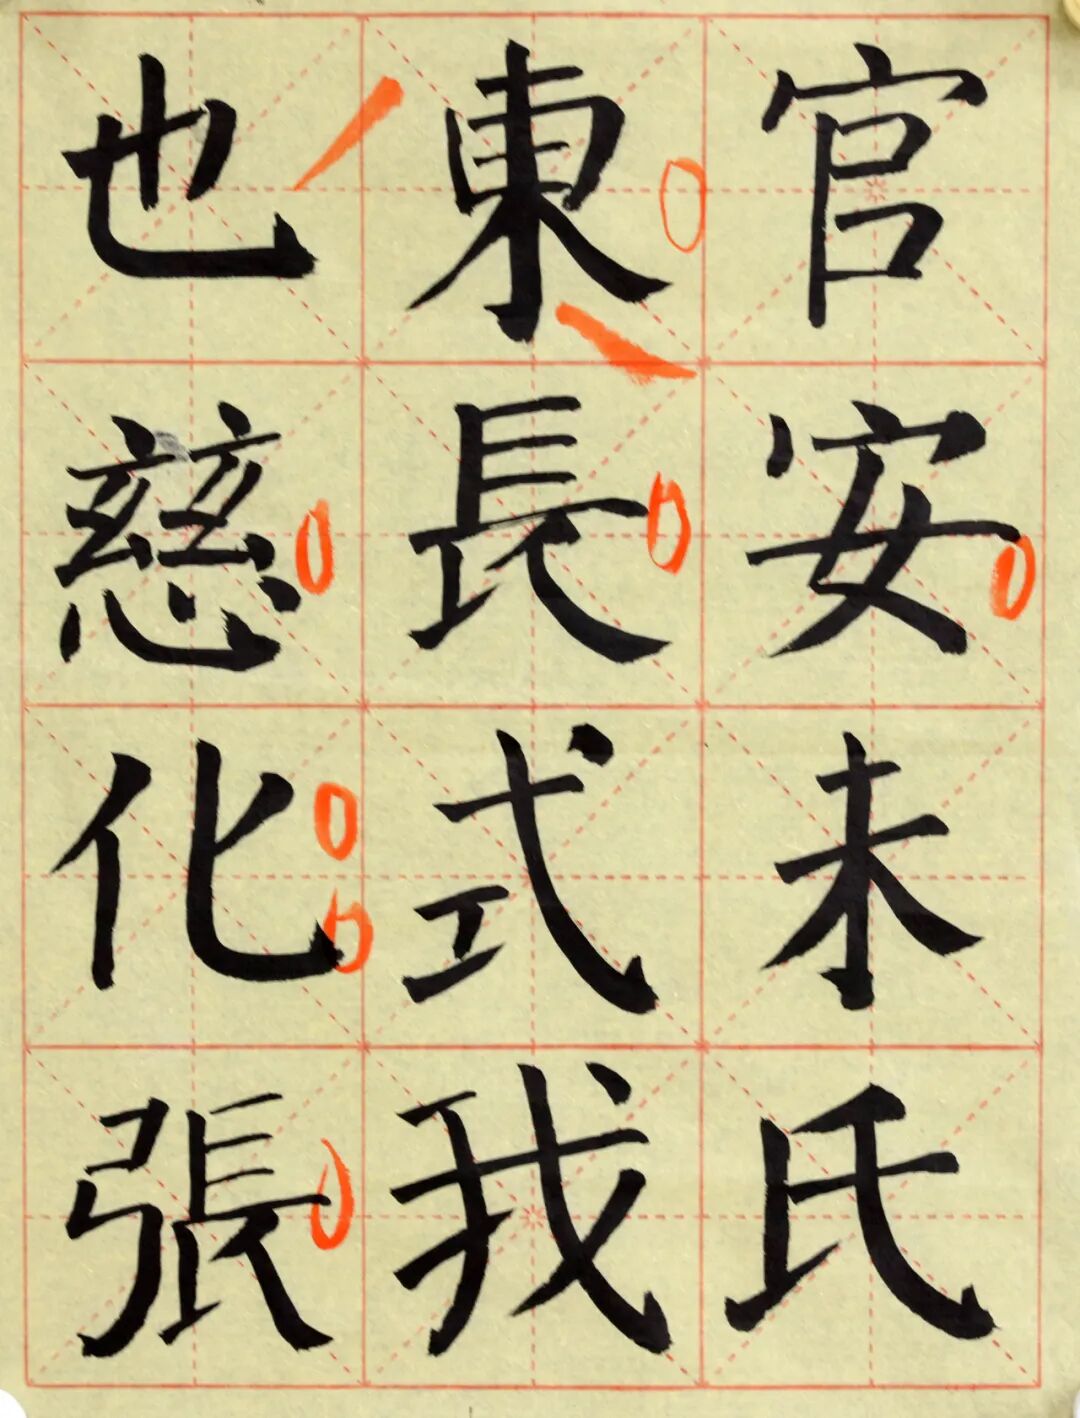 官安未氏
東長式我
也慈化張